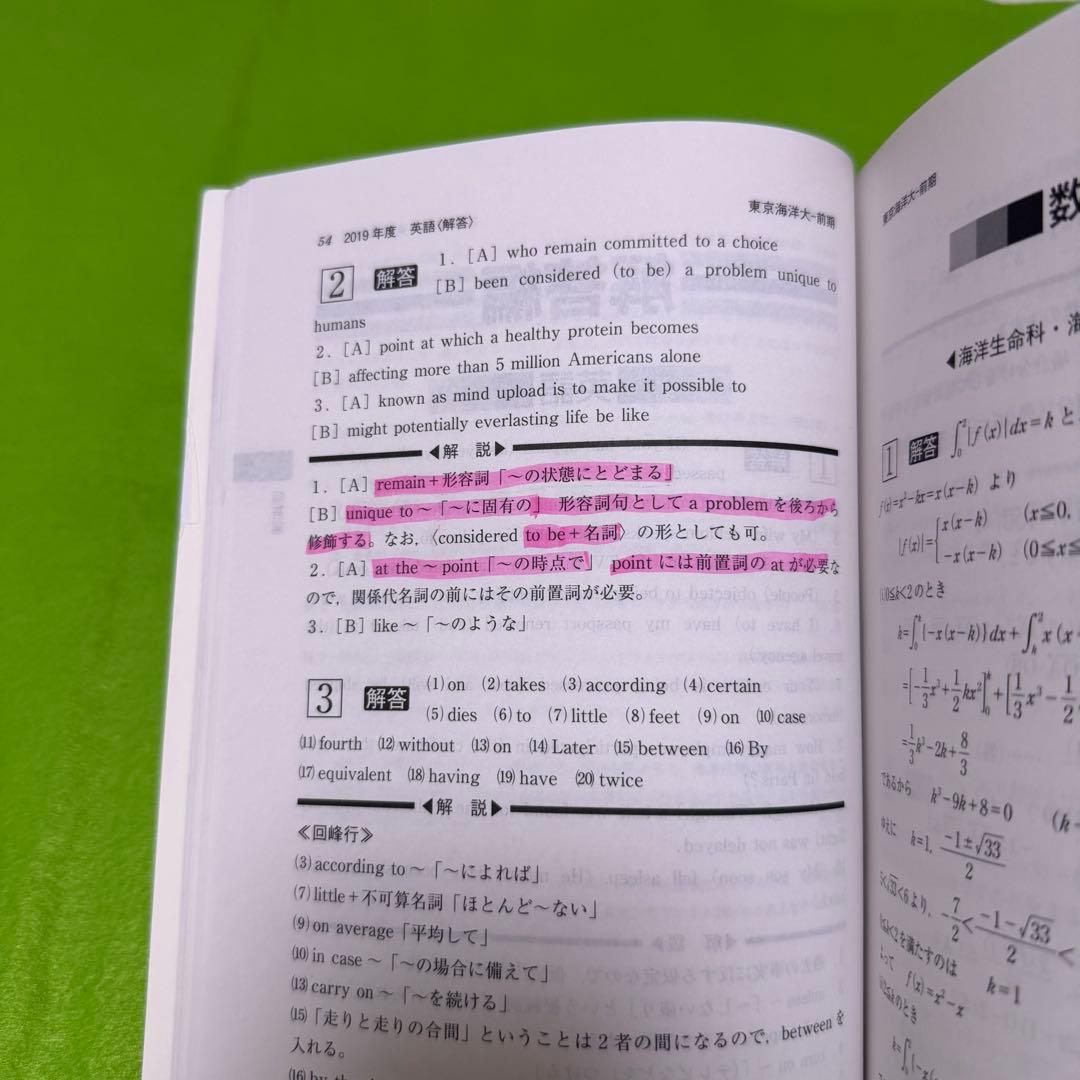 54 2019年度 英語〈解答〉 東京海洋大-前期
2 解答 1.[A] who remain committed to a choice
[B] been considered (to be) a problem unique to
humans
2.[A] point at which a healthy protein becomes
[B] affecting more than 5 million Americans alone
3.[A] known as mind upload is to make it possible to
[B] might potentially everlasting life be like
◀解 説▶
1.[A] remain+形容詞「~の状態にとどまる」
[B] unique to ~「~に固有の」 形容詞句として a problem を後ろから
修飾する。なお,〈considered to be+名詞〉の形としても可。
2.[A] at the ~ point「~の時点で」 point には前置詞の at が必要な
ので,関係代名詞の前にはその前置詞が必要。
3.[B] like ~「~のような」
3 解答 (1) on (2) takes (3) according (4) certain
(5) dies (6) to (7) little (8) feet (9) on (10) case
(11) fourth (12) without (13) on (14) Later (15) between (16) By
(17) equivalent (18) having (19) have (20) twice
◀解 説▶
≪回峰行≫
(3) according to ~「~によれば」
(7) little+不可算名詞「ほとんど~ない」
(9) on average「平均して」
(10) in case ~「~の場合に備えて」
(13) carry on ~「~を続ける」
(15)「走りと走りの合間」ということは2者の間になるので,between を
入れる。
東京海洋大-前期
数
◀海洋生命科・海
1 解答 ∫₀²|f(x)|dx=k と
f(x)=x²-kx=x(x-k) より
|f(x)|={x(x-k) (x≦0,
-x(x-k) (0≦x≦
(i)0≦k<2のとき
k=∫₀ᵏ{-x(x-k)}dx+∫ₖ²x(x-
=[-1/3x³+1/2kx²]₀ᵏ+[1/3x³-1/2
=1/3k³-2k+8/3
であるから k³-9k+8=0 (k-
ゆえに k=1, (-1±√33)/2
5<√33<6より, -7/2<(-1-√33)/2<
0≦k<2を満たすのは k=1
よって f(x)=x²-x